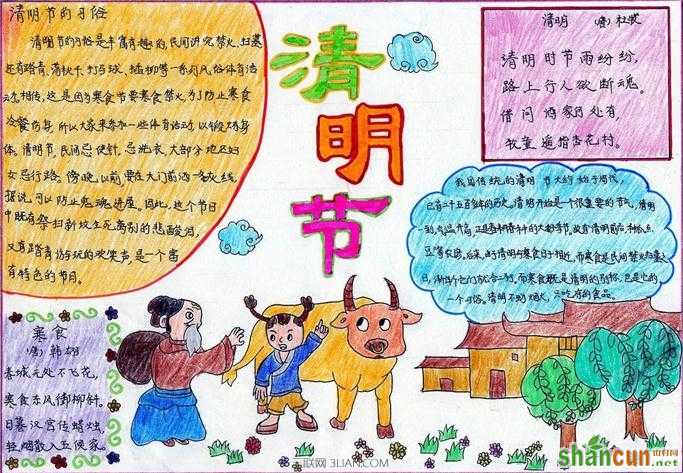 清明节的习俗
清明节的习俗是丰富有趣的,民间讲究禁火、扫墓
还有踏青、荡秋千、打马球、插柳等一系列风俗体育活
动。相传,这是因为寒食节要寒食禁火,为了防止寒食
冷餐伤身,所以大家来参加一些体育活动,以锻炼身
体。清明节,民间忌使针,忌洗衣,大部分地区妇
女忌行路。傍晚以前,要在大门前洒一条灰线,
据说可以防止鬼魂进宅。因此,这个节日
中既有祭扫新坟生死离别的悲酸泪,
又有踏青游玩的欢笑声,是一个富
有特色的节日。
清明节
清明 (唐) 杜牧
清明时节雨纷纷,
路上行人欲断魂。
借问酒家何处有,
牧童遥指杏花村。
我国传统的清明节大约始于周代,
已有二千五百多年的历史。清明开始是一个很重要的节气,清明
一到,气温升高,正是春耕春种的大好时节,故有清明前后,种瓜点
豆
一个习俗。清明不动烟火,只吃凉的食品。
寒食
(唐) 韩翃
春城无处不飞花,
寒食东风御柳斜。
日暮汉宫传蜡烛,
轻烟散入五侯家。
联网 3LIAN.COM
shancun
.net